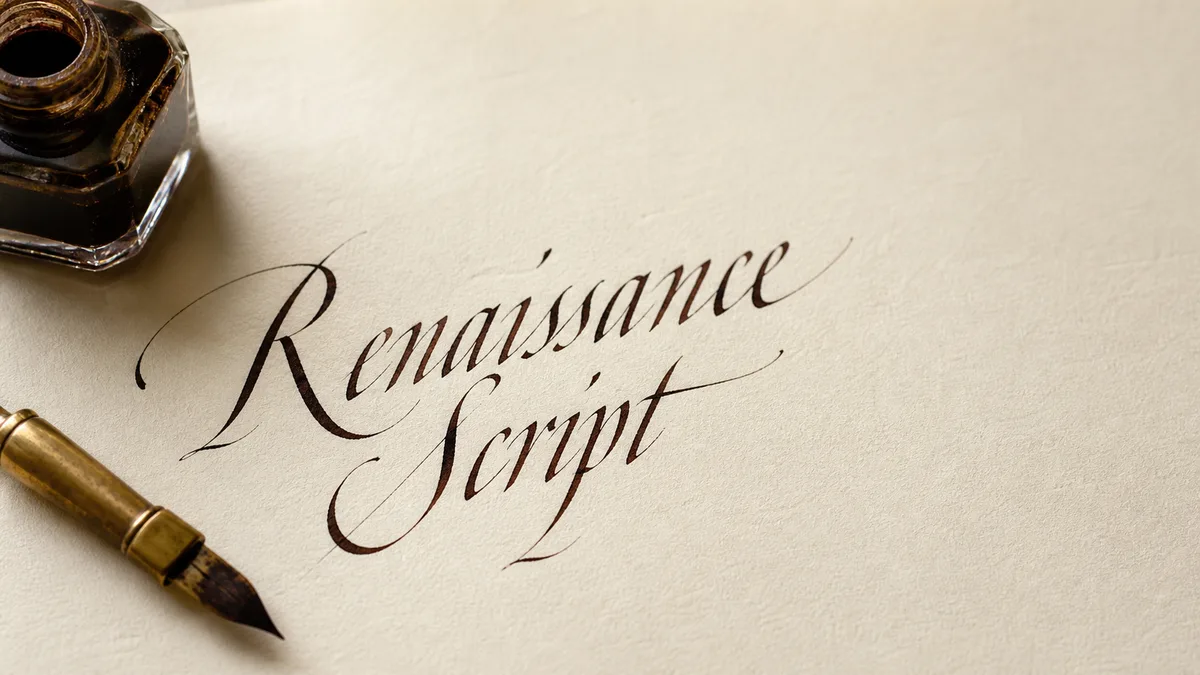 Renaissance
Script